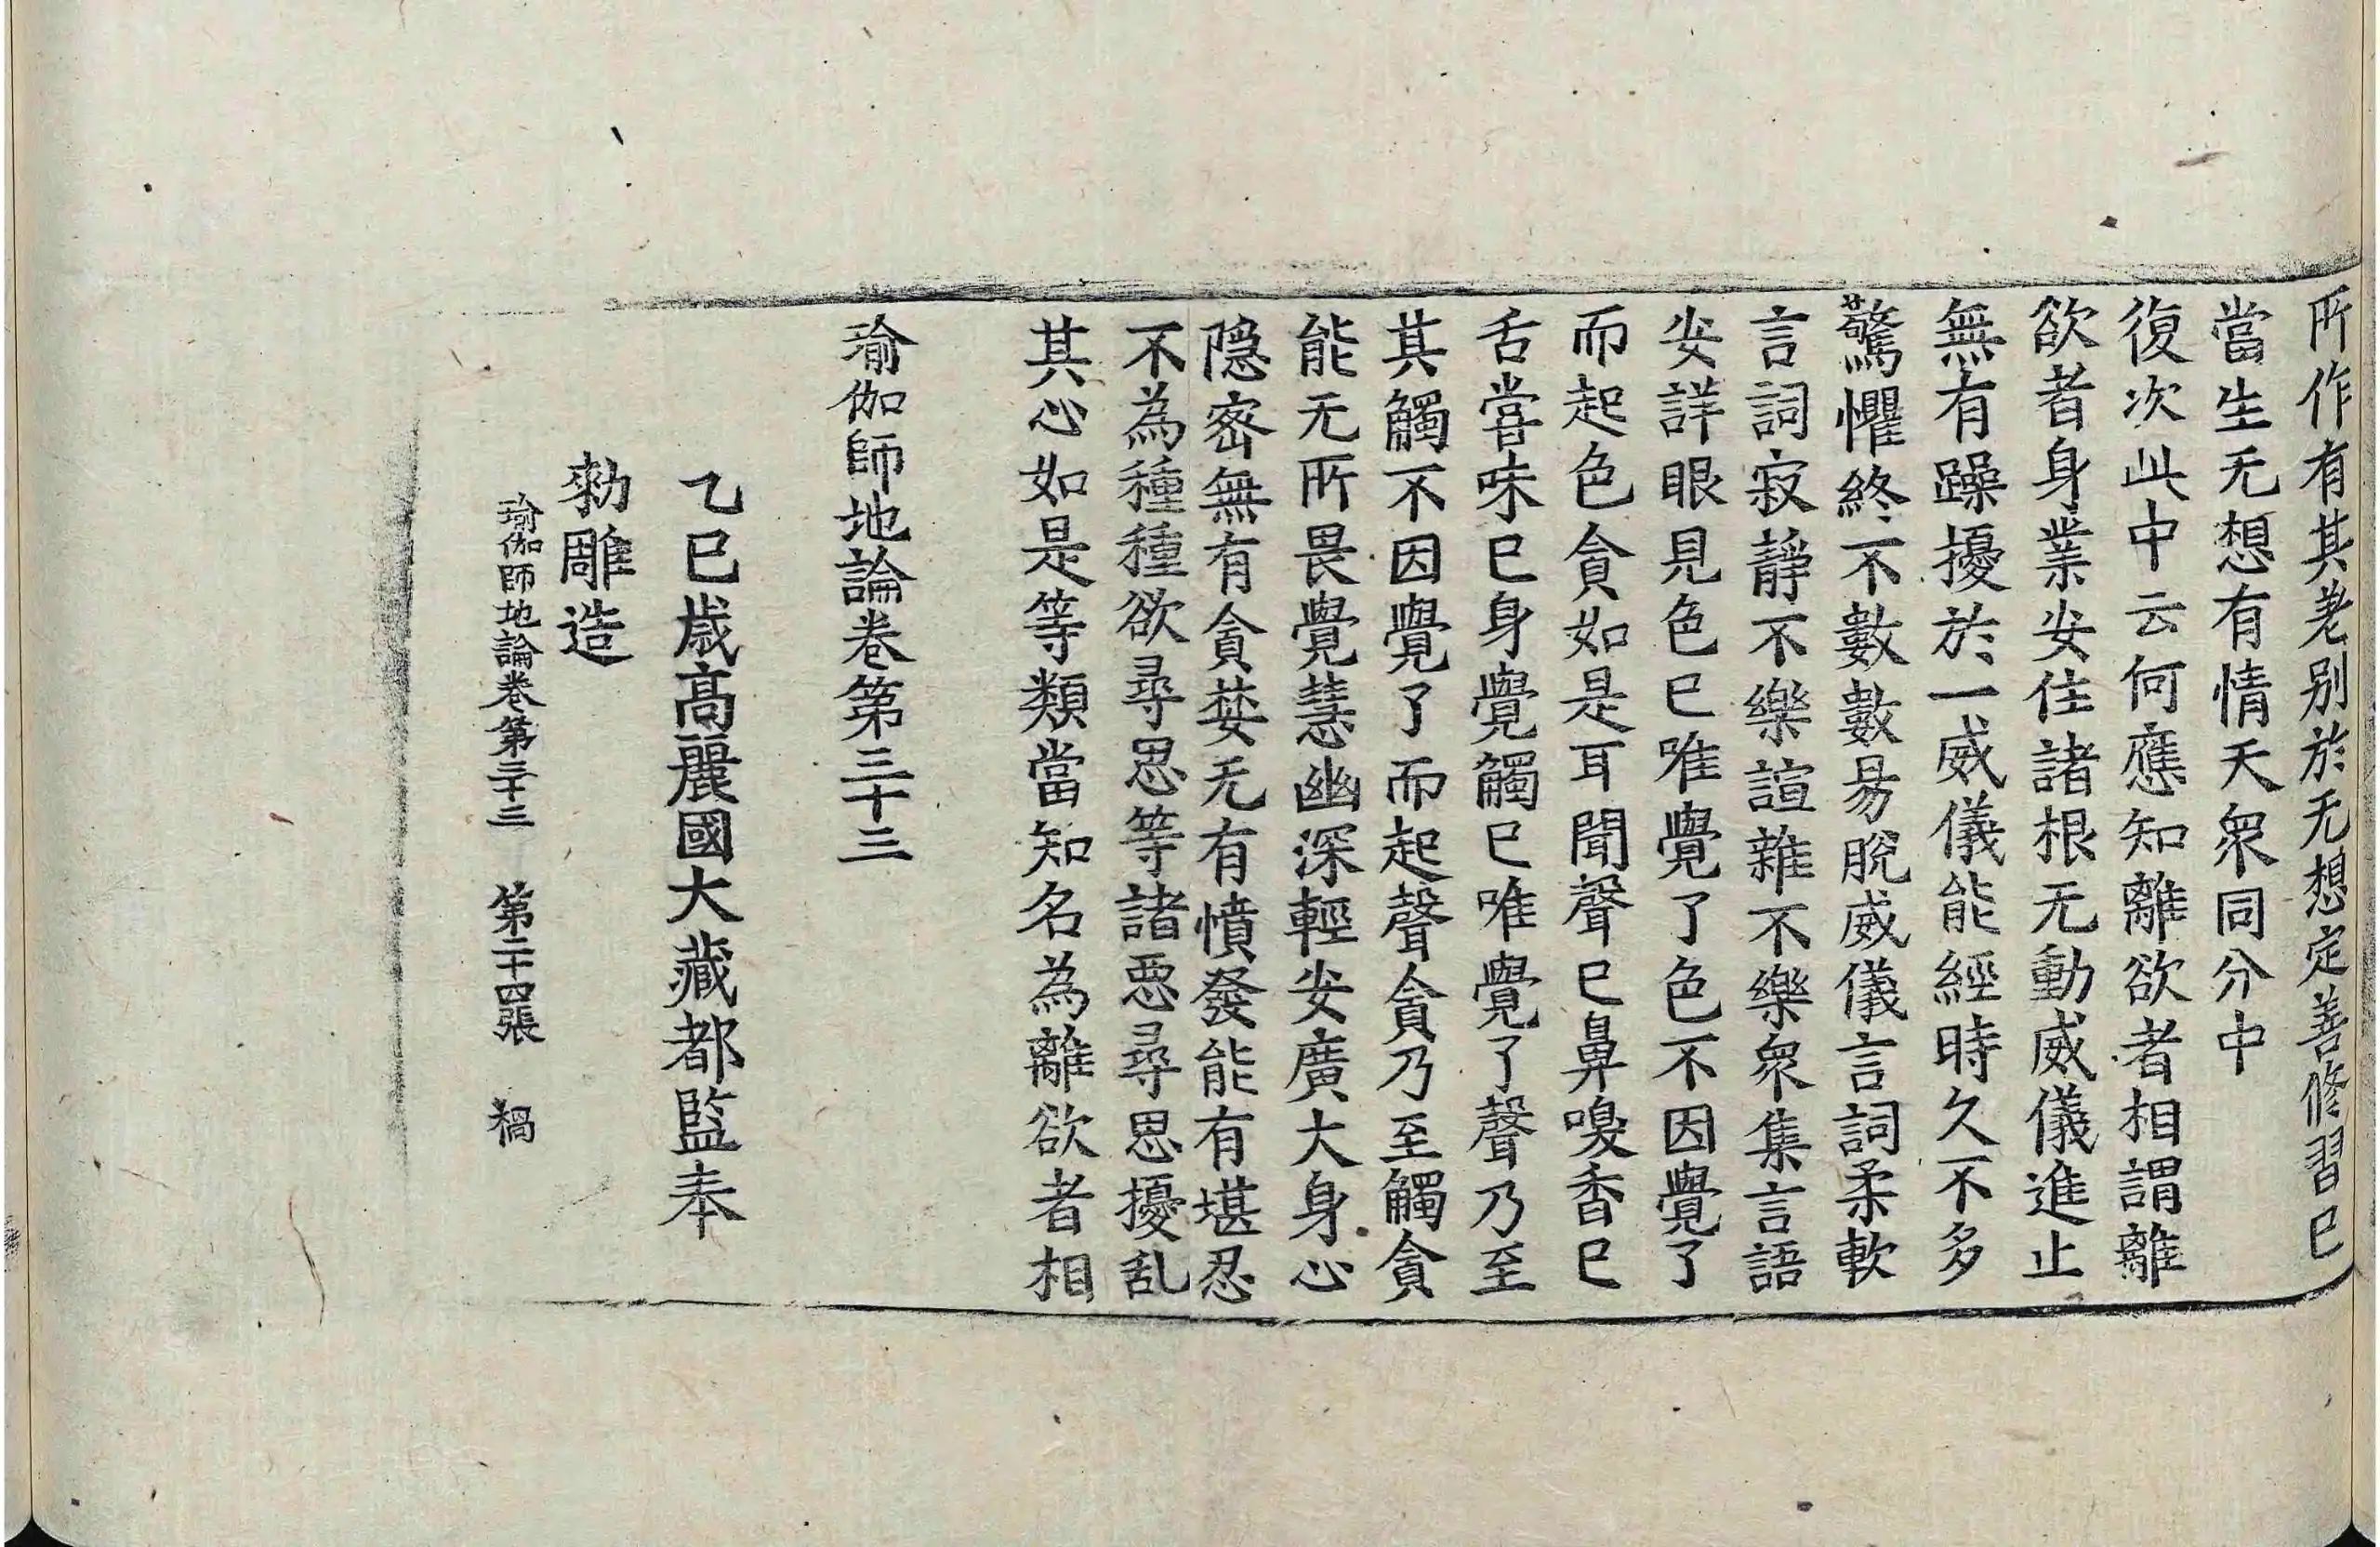 所作有其差别於无想定善修習已
當生无想有情天衆同分中
復次此中云何應知離欲者相謂離
欲者身業安住諸根无動威儀進止
無有躁擾於一威儀能經時久不多
驚懼終不數數易脫威儀言詞柔軟
言詞寂靜不樂諠雜不樂衆集言語
安詳眼見色已唯覺了色不因覺了
而起色貪如是耳聞聲已鼻嗅香已
舌甞味已身覺觸已唯覺了聲乃至
其觸不因覺了而起聲貪乃至觸貪
能无所畏覺慧幽深輕安廣大身心
隐密無有貪婪无有憤發能有堪忍
不為種種欲尋思等諸惡尋思擾乱
其心如是等類當知名為離欲者相
瑜伽師地論卷第三十三
乙巳歳高麗國大藏都監奉
勑雕造
瑜伽師地論卷第三十三 第二十四張 禍